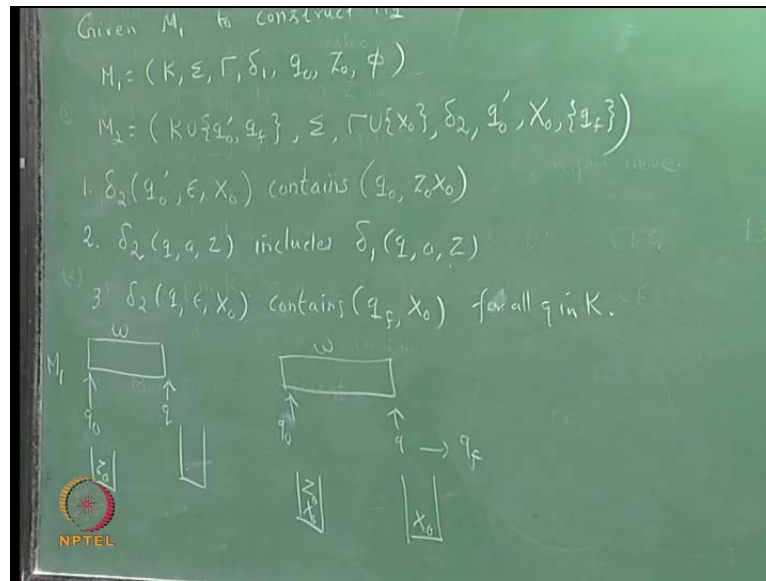 Given M₁ to construct M₂
M₁ = (K, Σ, Γ, δ₁, q₀, Z₀, φ)
M₂ = (K∪{q₀', q_f}, Σ, Γ∪{X₀}, δ₂, q₀', X₀, {q_f})
1. δ₂(q₀', ε, X₀) contains (q₀, Z₀X₀)
2. δ₂(q, a, Z) includes δ₁(q, a, Z)
3 δ₂(q, ε, X₀) contains (q_f, X₀) for all q in K.
w w
M₁
q₀ q q₀ q → q_f
Z₀ Z₀
X₀ X₀
NPTEL